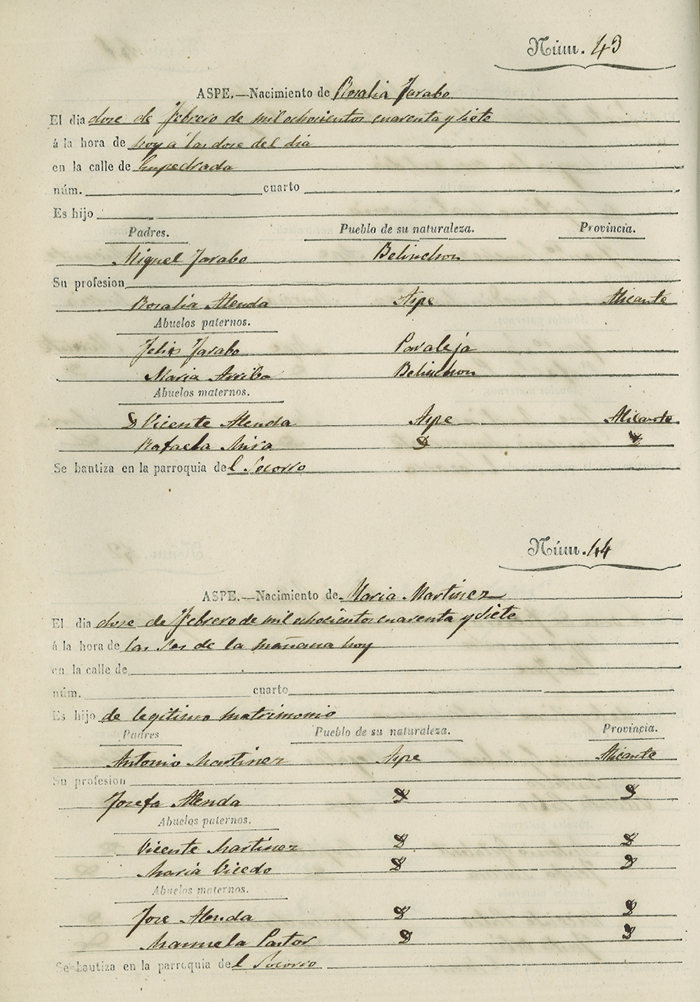 Núm. 43
ASPE.—Nacimiento de Rosalia Jarabo
El dia dose de Febrero de mil ochocientos cuarenta y siete
á la hora de hoy a las dose del dia
en la calle de Empedrada
núm. cuarto
Es hijo
Padres. Pueblo de su naturaleza. Provincia.
Miguel Jarabo Belinchon
Su profesion
Rosalia Alenda Aspe Alicante
Abuelos paternos.
Felis Jarabo
Maria Arriba Belinchon
Abuelos maternos.
Vicente Alenda Aspe Alicante
Rafaela Mira
Se bautiza en la parroquia del Socorro
Núm. 44
ASPE.—Nacimiento de Maria Martinez
El dia dose de Febrero de mil ochocientos cuarenta y siete
á la hora de las ses de la mañana hoy
en la calle de
núm. cuarto
Es hijo de legitimo matrimonio
Padres Pueblo de su naturaleza. Provincia.
Antonio Martinez Aspe Alicante
Su profesion
Josefa Alenda
Abuelos paternos.
Vicente Martinez
Maria Vicedo
Abuelos maternos.
Jose Alenda
Manuela Pastor
Se bautiza en la parroquia del Socorro